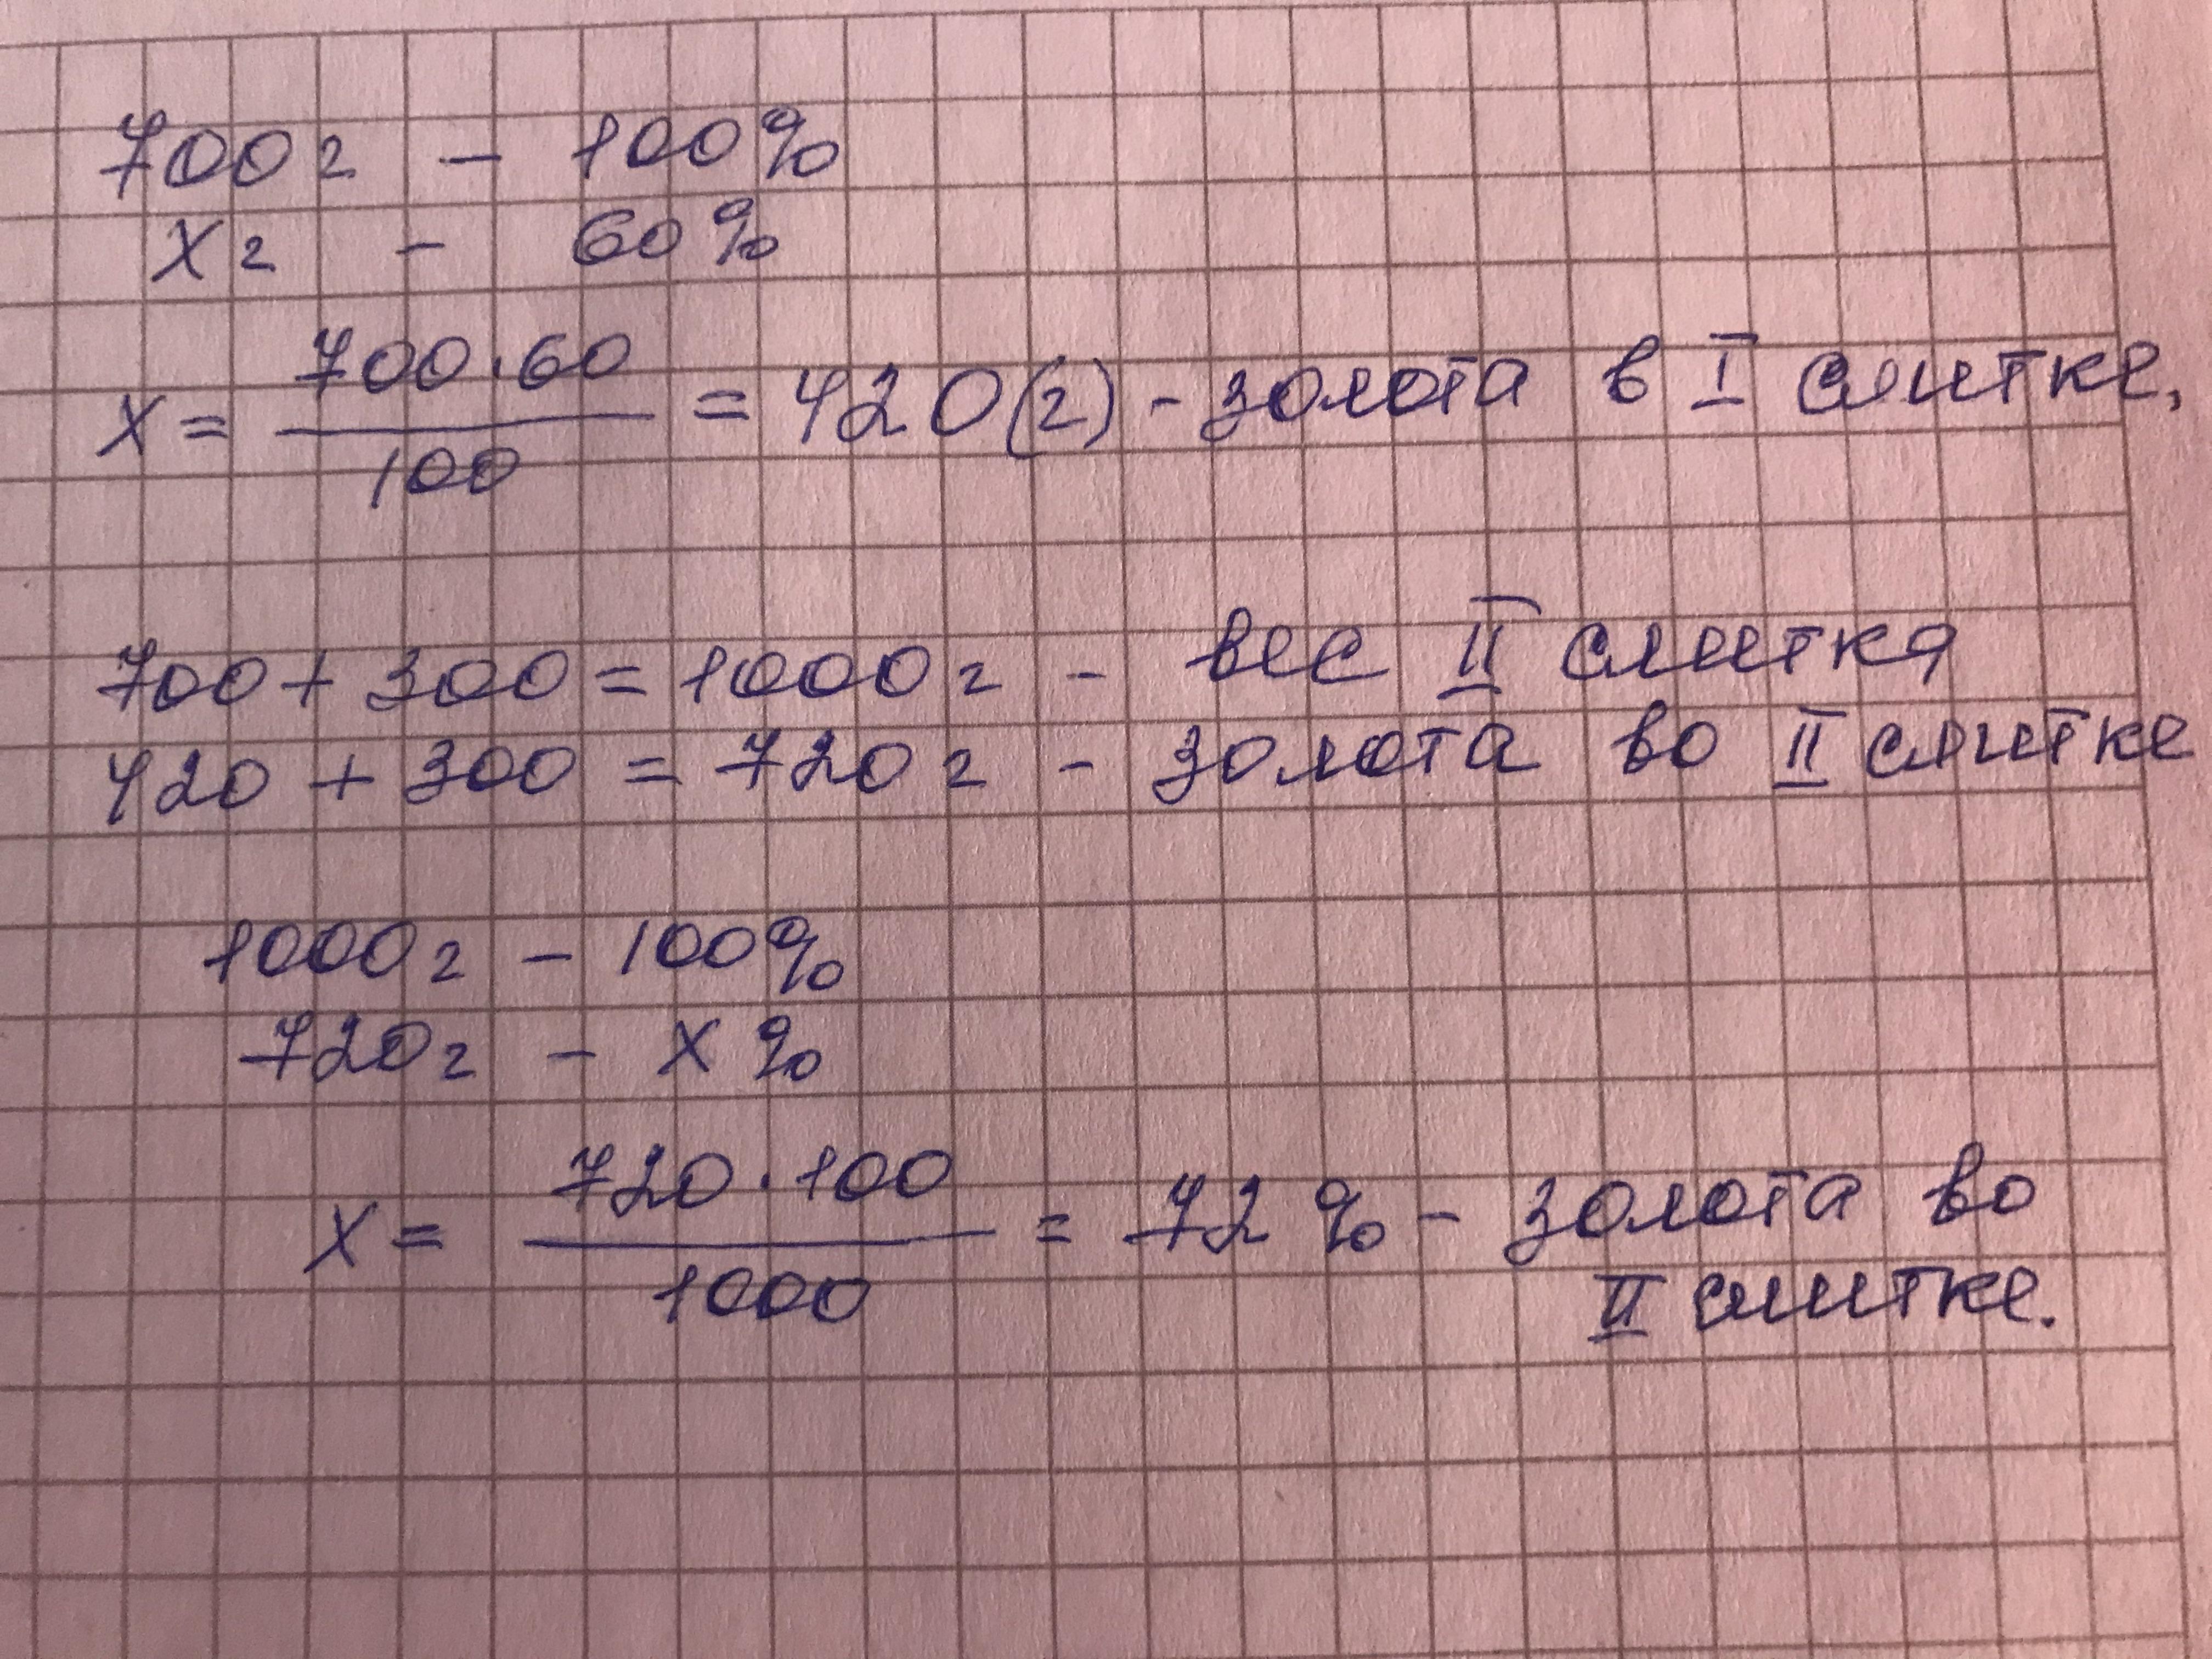 700г - 100%
Xг - 60%
X = 700·60 / 100 = 420(г) - золота в I слитке.
700 + 300 = 1000г - вес II слитка
420 + 300 = 720г - золота во II слитке
1000г - 100%
720г - X%
X = 720·100 / 1000 = 72% - золота во
II слитке.